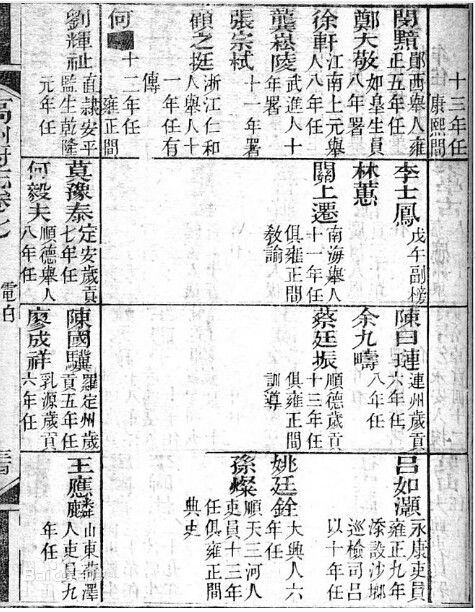 十三年任
康熙間
閔黯 鄖西舉人雍
正五年任
鄭大敬 如皋生員
八年署
徐軒 江南上元舉
人八年任
龔崧陵 武進人十
年署
張宗栻 十一年署
顧之挺 浙江仁和
人舉人十
一年任有
傳
何 十二年任
雍正間
劉輝祉 直隸安平
監生乾隆
元年任
李士鳳 戊午副榜
林蕙
關上遷 南海舉人
十一年任
俱雍正間
教諭
莫豫泰 定安歲貢
七年任
何毅夫 順德舉人
八年任
陳曰璉 連州歲貢
六年任
余九疇 八年任
蔡廷振 順德歲貢
十三年任
俱雍正間
訓導
陳國驥 羅定州歲
貢五年任
廖成祥 乳源歲貢
六年任
呂如灝 永康吏員
雍正九年
添設沙瑯
巡檢司呂
以十年任
姚廷銓 大興人六
年任
孫燦 順天三河人
吏員十三年
任俱雍正間
典史
王應麟 山東菏澤
人吏員九
年任
高州府志卷七
電白